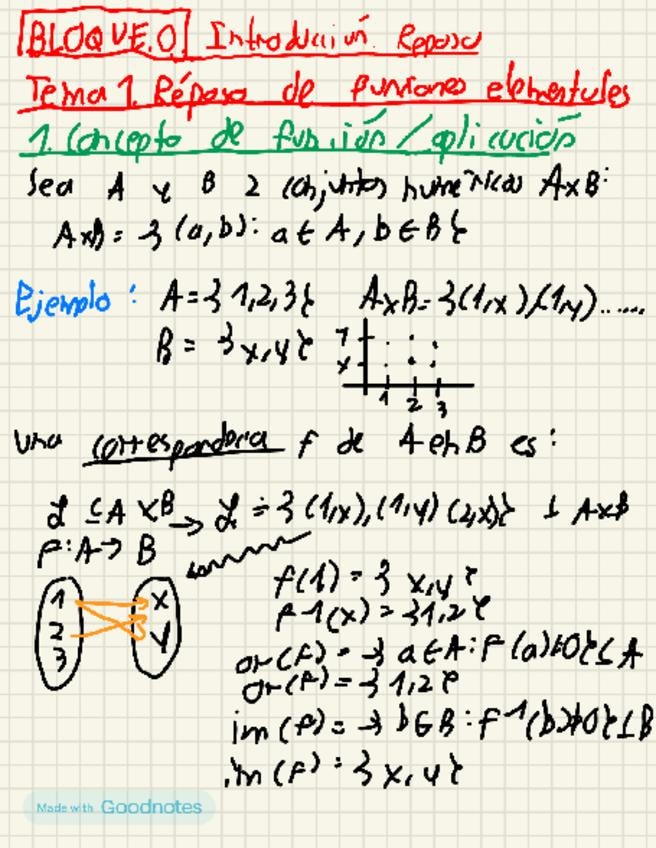 BLOQUE.0 Introducción. Repaso
Tema 1. Repaso de funciones elementales
1. Concepto de función/aplicación
Sea A y B 2 conjuntos numéricos AxB:
AxB = {(a,b): a ∈ A, b ∈ B}
Ejemplo: A = {1,2,3} AxB = {(1,x),(1,y)......
B = {x,y}
y
x
1 2 3
Una correspondencia f de A en B es:
⊆ A x B → = {(1,x),(1,y) (2,x)} ⊆ AxB
f: A → B
1 x
2 y
3
f(1) = {x,y}
f-1(x) = {1,2}
or(f) = {a ∈ A: f(a) ≠ 0} ⊆ A
or(f) = {1,2}
im(f) = {b ∈ B: f-1(b) ≠ 0} ⊆ B
im(f) = {x,y}
Made with Goodnotes